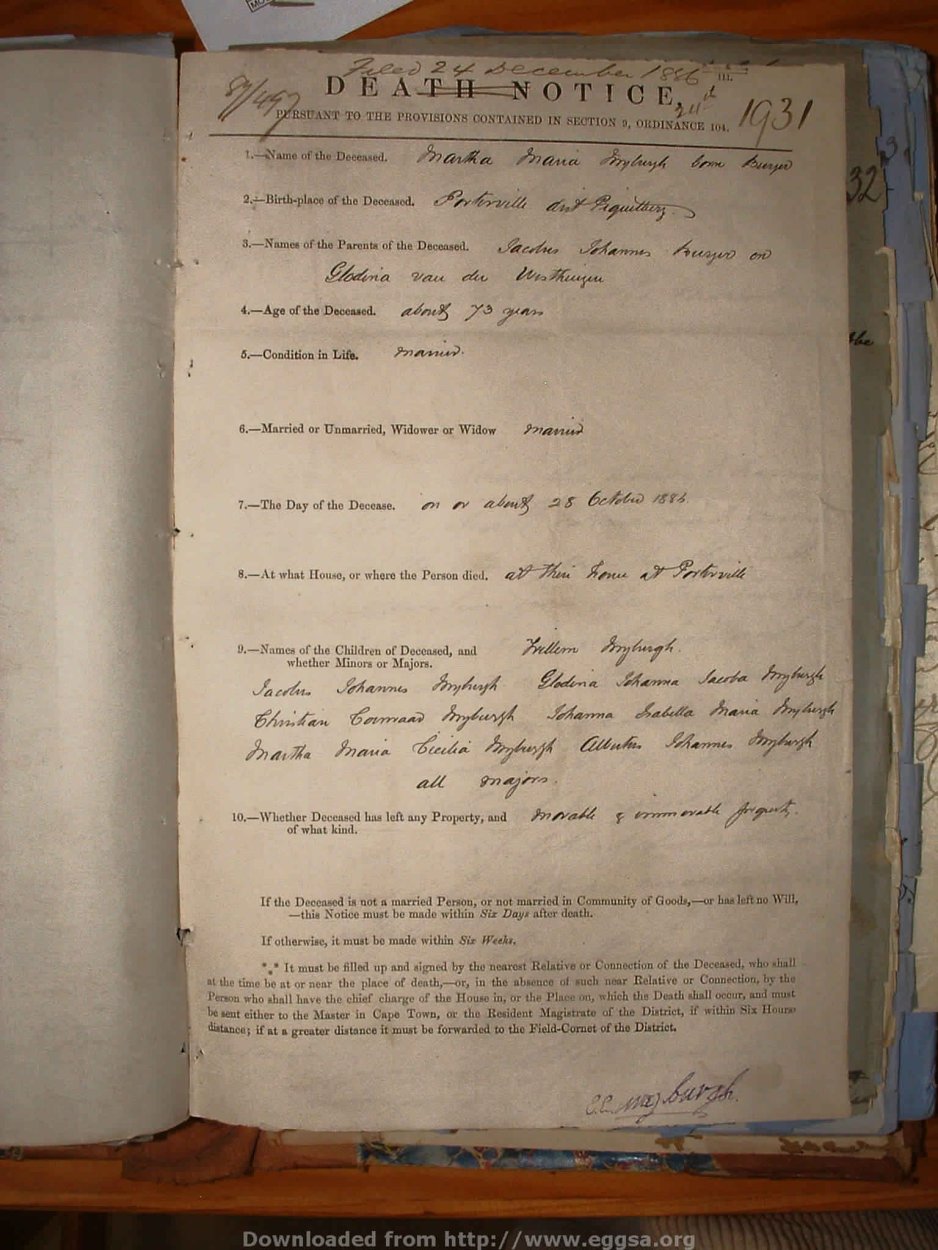 Filed 24 December 1886
III.
DEATH NOTICE,
24th
1931
PURSUANT TO THE PROVISIONS CONTAINED IN SECTION 9, ORDINANCE 104.
1.—Name of the Deceased. Martha Maria Myburgh born Burger
2.—Birth-place of the Deceased. Porterville dist Piquetberg.
3.—Names of the Parents of the Deceased. Jacobus Johannes Burger en
Glodina van der Westhuizen
4.—Age of the Deceased. about 73 years
5.—Condition in Life. married.
6.—Married or Unmarried, Widower or Widow married
7.—The Day of the Decease. on or about 28 October 1886
8.—At what House, or where the Person died. at their home at Porterville
9.—Names of the Children of Deceased, and Willem Myburgh.
whether Minors or Majors.
Jacobus Johannes Myburgh Glodina Johanna Jacoba Myburgh
Christian Coenraad Myburgh Johanna Isabella Maria Myburgh
Martha Maria Cicilia Myburgh Albertus Johannes Myburgh
all majors.
10.—Whether Deceased has left any Property, and movable & immovable property.
of what kind.
If the Deceased is not a married Person, or not married in Community of Goods,—or has left no Will,
—this Notice must be made within Six Days after death.
If otherwise, it must be made within Six Weeks.
*** It must be filled up and signed by the nearest Relative or Connection of the Deceased, who shall
at the time be at or near the place of death,—or, in the absence of such near Relative or Connection, by the
Person who shall have the chief charge of the House in, or the Place on, which the Death shall occur, and must
be sent either to the Master in Cape Town, or the Resident Magistrate of the District, if within Six Hours'
distance; if at a greater distance it must be forwarded to the Field-Cornet of the District.
C.C. Myburgh.
32
the
Downloaded from http://www.eggsa.org